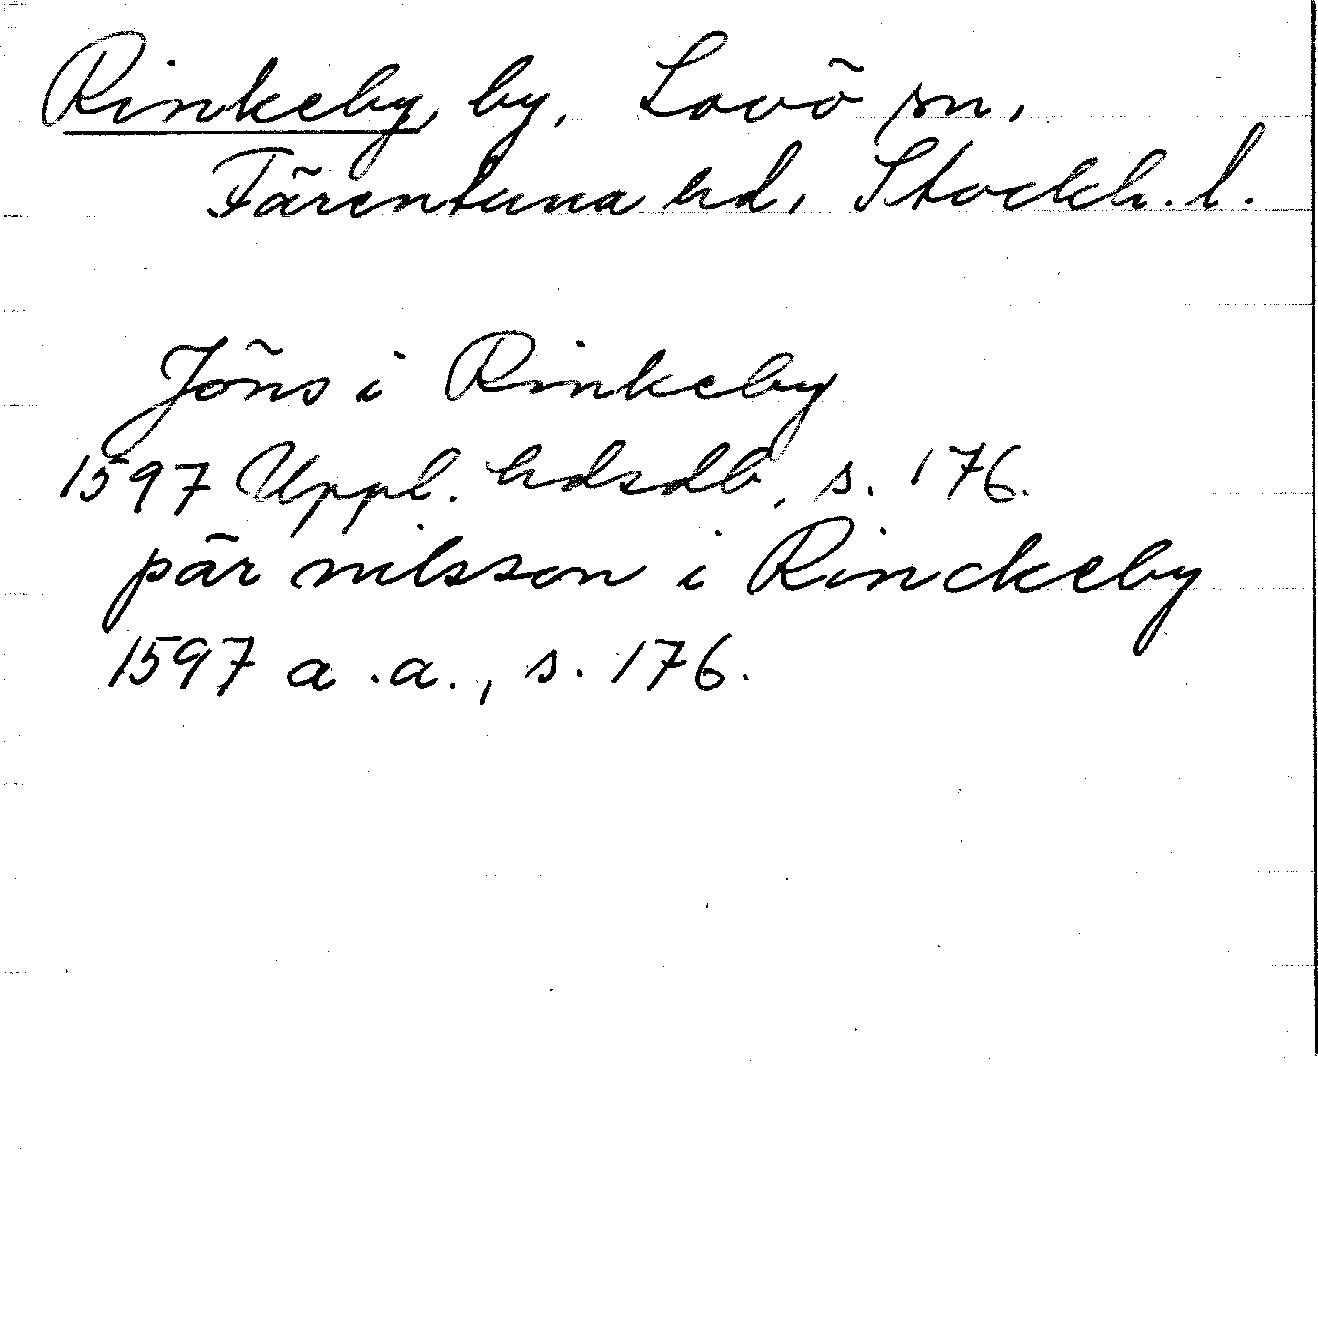 Rinkeby, by, Lovö sn,
Färentuna hd, Stockh. l.
Jöns i Rinkeby
1597 Uppl. hdsdb, s. 176.
pär nilsson i Rinckeby
1597 a.a., s. 176.